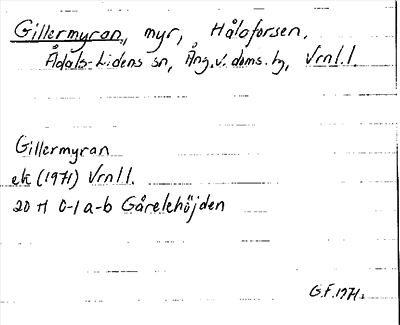 Gillermyran, myr, Hålaforsen,
Ådals-Lidens sn, Ång.v.doms.hg, Vrnl.l.
Gillermyran
ek (1971) Vrnl.l.
20 H 0-1 a-b Gårelehöjden
G.F.1971.